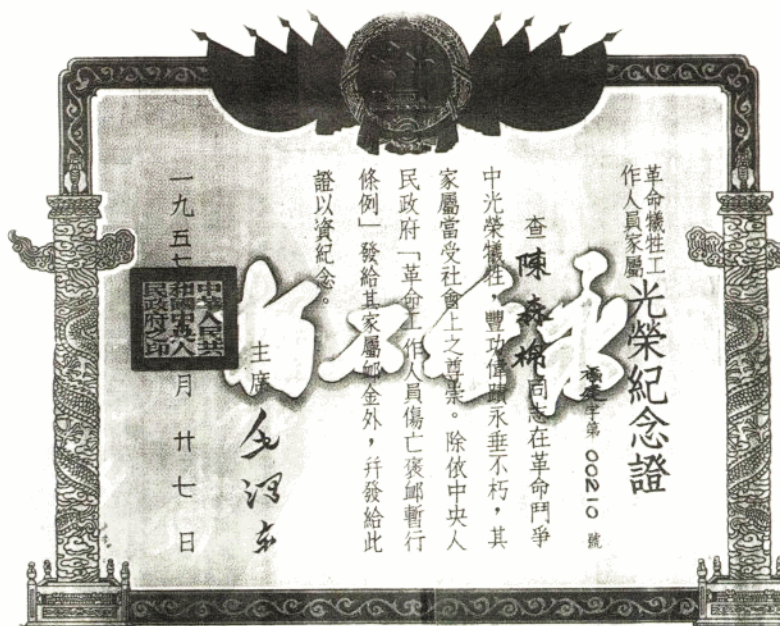 革命犧牲工
作人員家屬
光榮紀念證
福建字第00210號
查陳森棉同志在革命鬥爭
中光榮犧牲，豐功偉蹟永垂不朽，其
家屬當受社會上之尊崇。除依中央人
民政府「革命工作人員傷亡褒卹暫行
條例」發給其家屬卹金外，幷發給此
證以資紀念。
主席
毛澤東
一九五七　月廿七日
中華人民共
和國中央人
民政府之印
永垂不朽